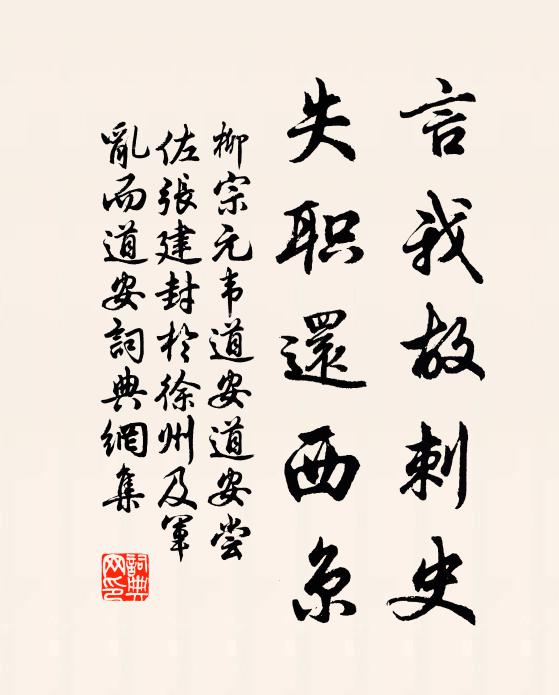 言我故刺史
失职還西京
柳宗元韦道安道安尝
佐張建封於徐州及軍
亂而道安詞典網集
詞典網印